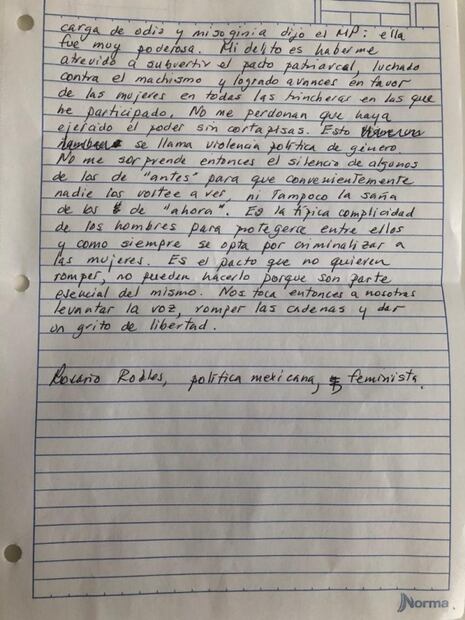 carga de odio y misoginia dijo el MP: ella
fue muy poderosa. Mi delito es haberme
atrevido a subvertir el pacto patriarcal, luchado
contra el machismo y logrado avances en favor
de las mujeres en todas las trincheras en las que
he participado. No me perdonan que haya
ejercido el poder sin cortapisas. Esto
se llama violencia política de género
No me sorprende entonces el silencio de algunos
de los de "antes" para que convenientemente
nadie los voltee a ver, ni tampoco la saña
de los de "ahora". Es la típica complicidad
de los hombres para protegerse entre ellos
y como siempre se opta por criminalizar a
las mujeres. Es el pacto que no quieren
romper, no pueden hacerlo porque son parte
esencial del mismo. Nos toca entonces a nosotras
levantar la voz, romper las cadenas y dar
un grito de libertad.
Rosario Robles, política mexicana, feminista.
Norma